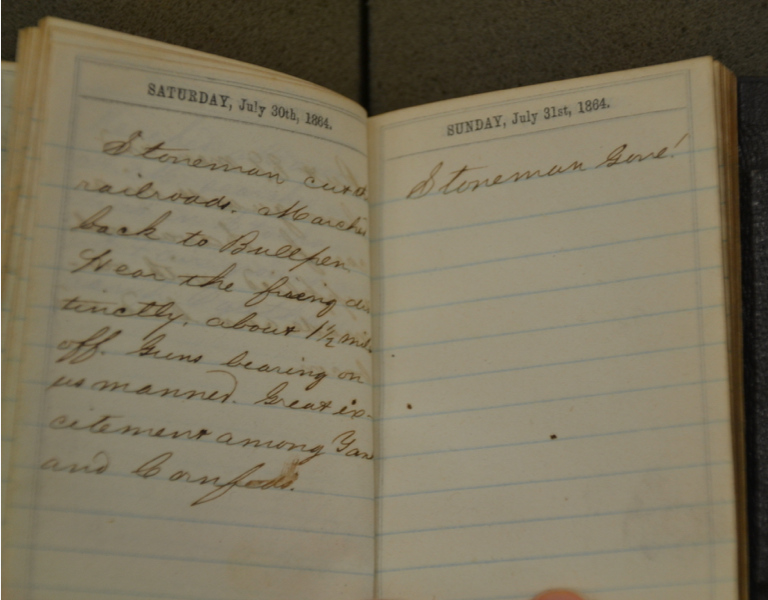 SATURDAY, July 30th, 1864.
Stoneman cut
railroads. March
back to Bullpen
Hear the firing dis
tinctly. about 1½ mil
off. Guns bearing on
us manned. Great ex-
citement among Yan
and Confeds.
SUNDAY, July 31st, 1864.
Stoneman Gone!